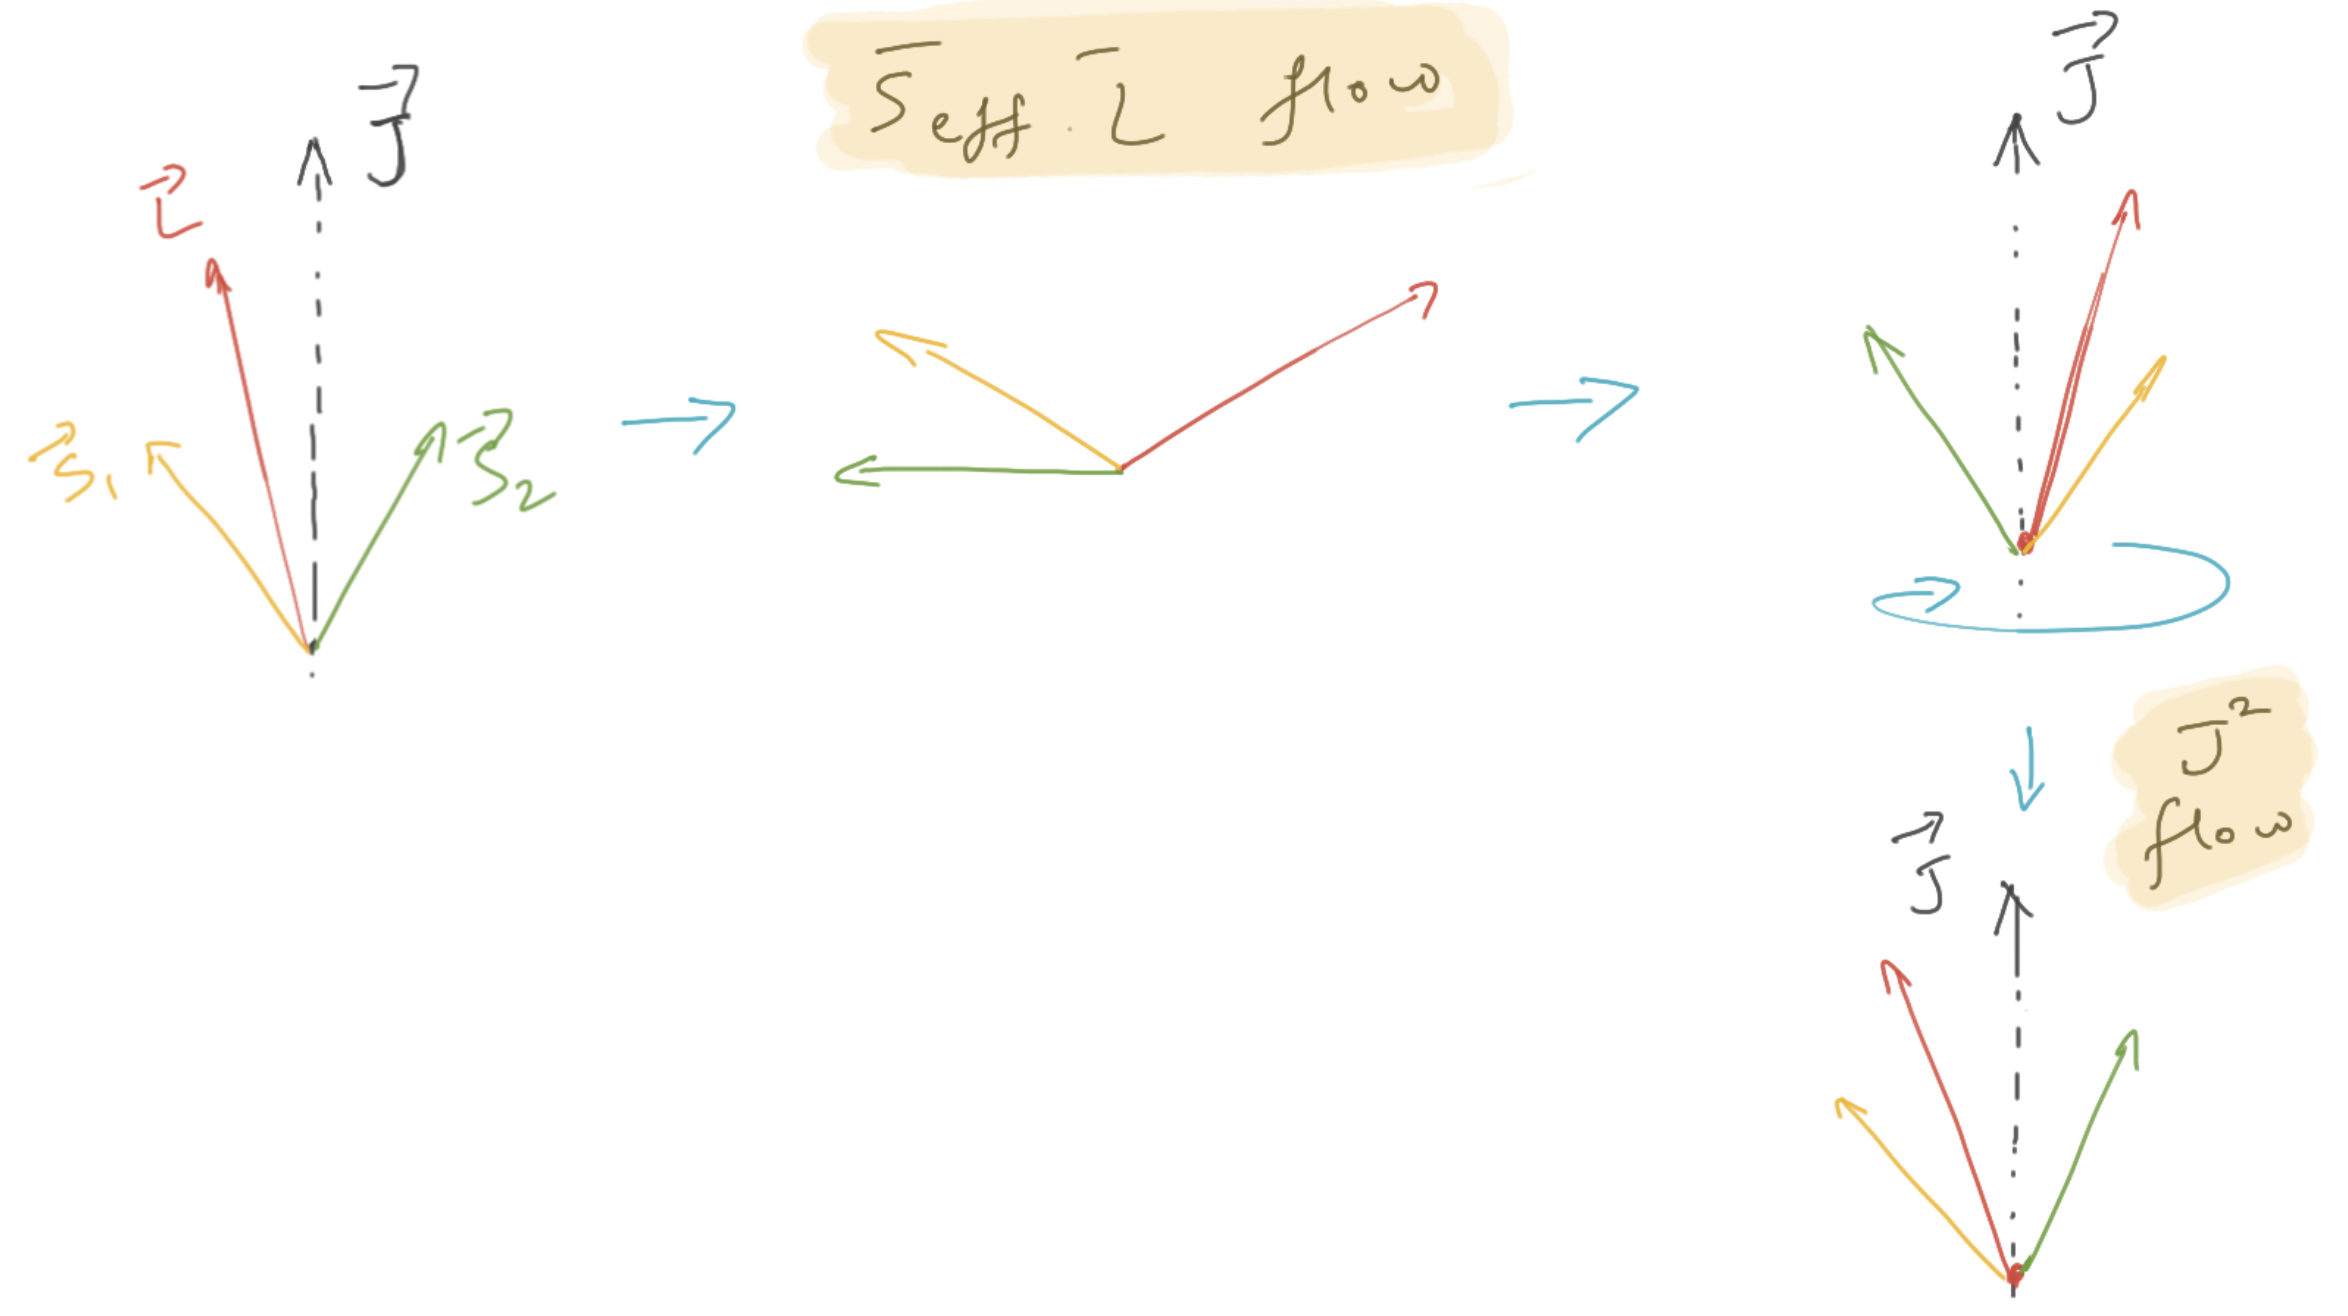 S⃗eff · L⃗ flow
J⃗
L⃗
S⃗1
S⃗2
J⃗
J² flow
J⃗